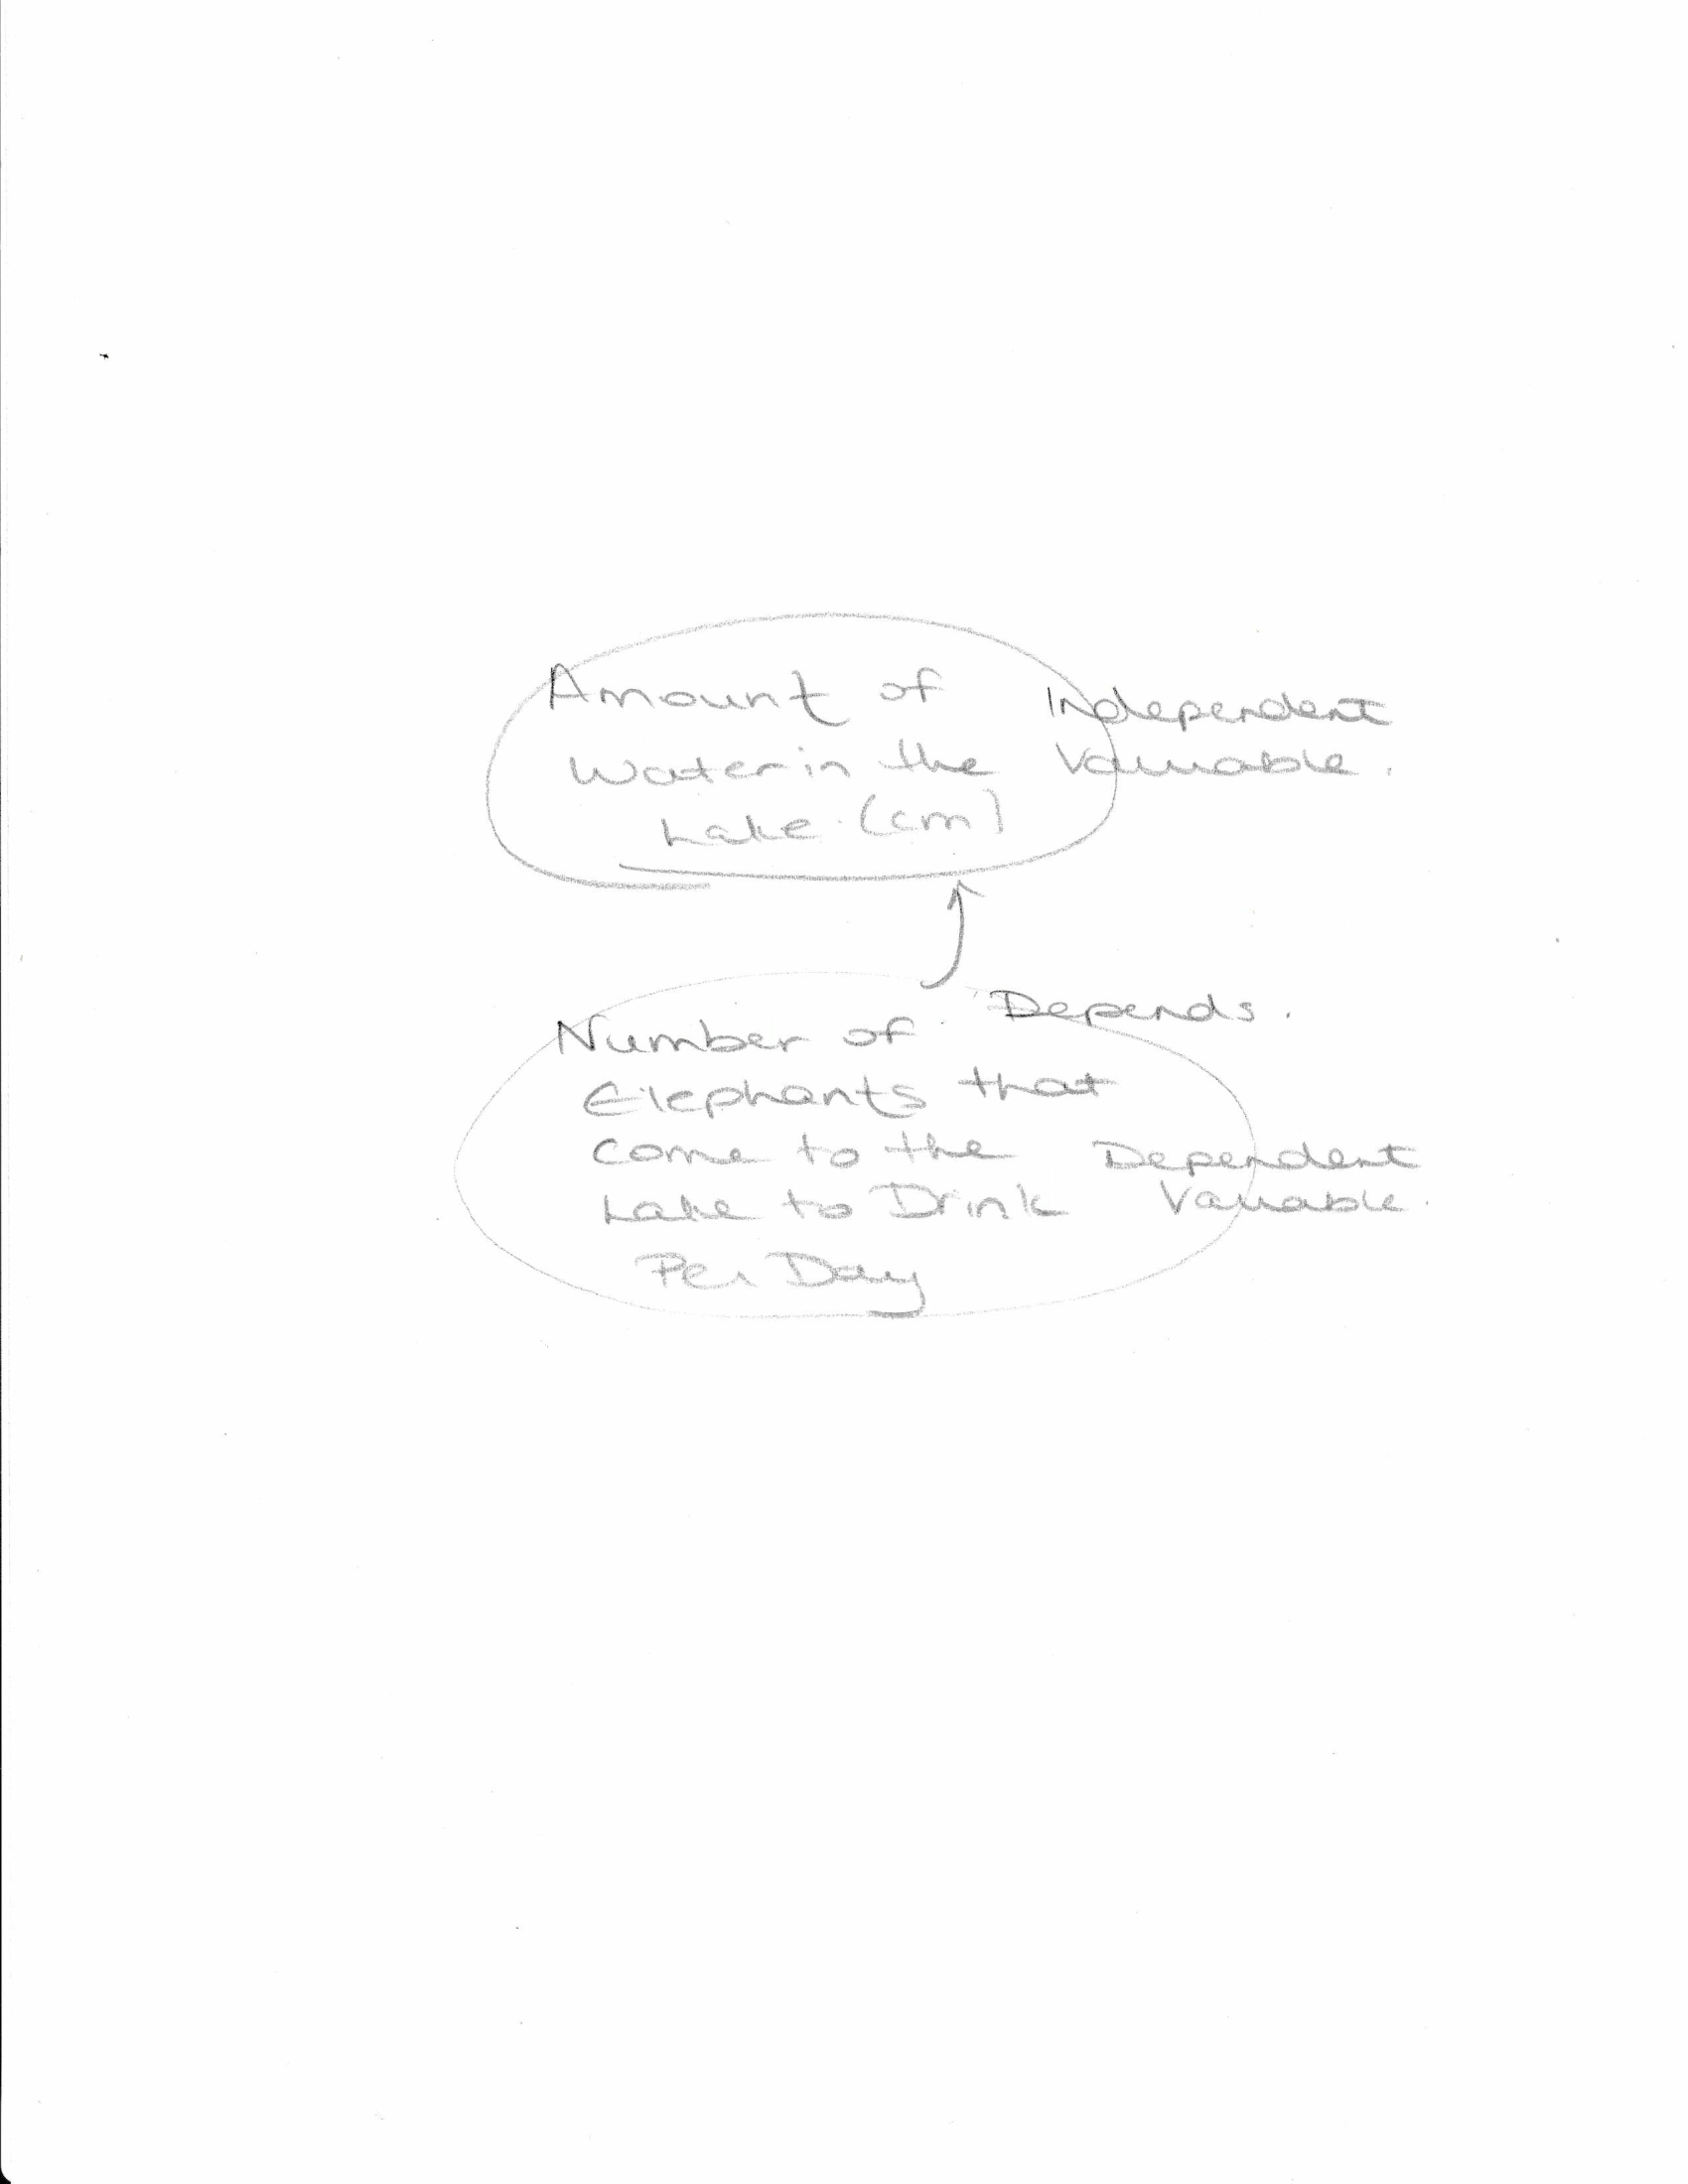 Amount of
Water in the
Lake (cm)
Independent
Variable.
Depends.
Number of
Elephants that
come to the
Lake to Drink
Per Day
Dependent
Variable.